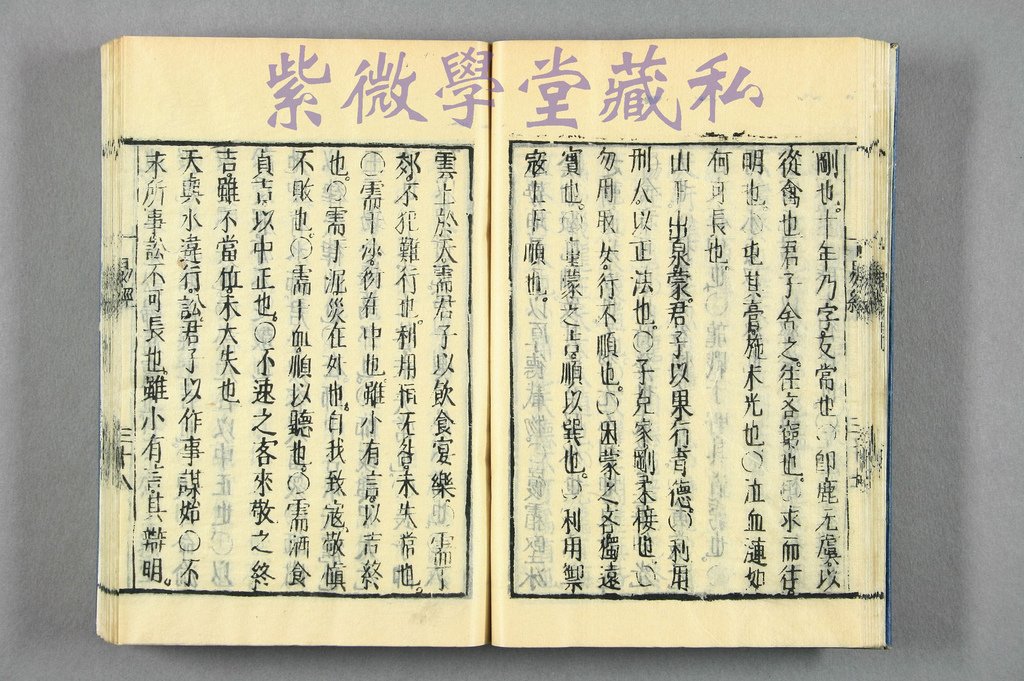 紫微學堂藏私
剛也。十年乃字。反常也〇即鹿无虞。以
從禽也。君子舍之。往吝窮也。〇求而往。
明也。〇屯其膏。施未光也〇泣血漣如
何可長也。
山下出泉蒙。君子以果行育德。〇利用
刑人以正法也。〇子克家。剛柔接也〇
勿用取女。行不順也。〇困蒙之吝。獨遠
實也。〇童蒙之吉。順以巽也。〇利用禦
寇。上下順也。
雲上於天需。君子以飲食宴樂。〇需于
郊。不犯難行也。利用恒无咎。未失常也。
〇需于沙。衍在中也。雖小有言。以吉終
也。〇需于泥。災在外也。自我致寇。敬慎
不敗也。〇需于血。順以聽也。〇需酒食
貞吉。以中正也。〇不速之客來。敬之終
吉。雖不當位。未大失也
天與水違行。訟。君子以作事謀始〇不
永所事。訟不可長也。雖小有言。其辯明。
三十八